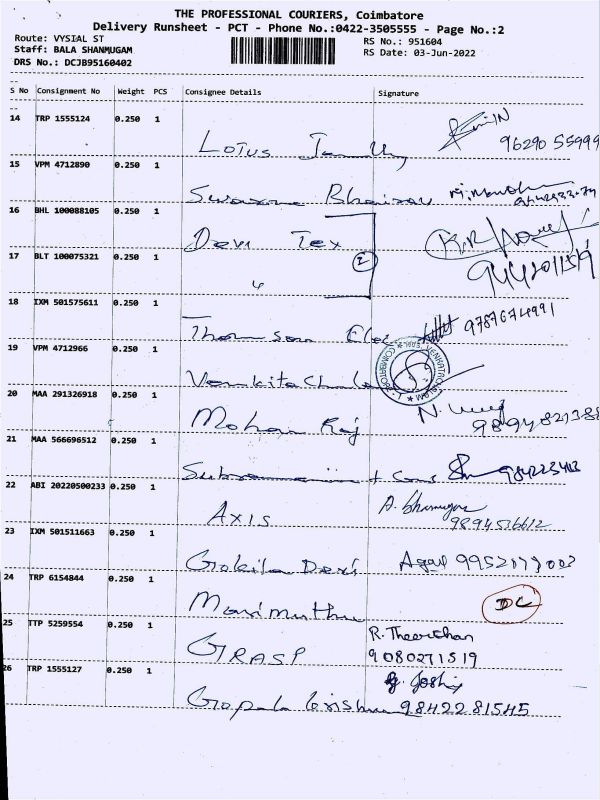 THE PROFESSIONAL COURIERS, Coimbatore
Delivery Runsheet - PCT - Phone No.:0422-3505555 - Page No.:2
Route: VYSIAL ST RS No.: 951604
Staff: BALA SHANMUGAM RS Date: 03-Jun-2022
DRS No.: DCJB95160402
S No Consignment No Weight PCS Consignee Details Signature
14 TRP 1555124 0.250 1
Lotus 96290 55999
15 VPM 4712890 0.250 1
Swarna Bhairav
16 BHL 100088105 0.250 1
Devi Tex K.R
17 BLT 100075321 0.250 1
" 2
18 IXM 501575611 0.250 1
Thomson Elec 9787674991
19 VPM 4712966 0.250 1
20 MAA 291326918 0.250 1
Mohan Raj
21 MAA 566696512 0.250 1
22 ABI 20220500233 0.250 1
Axis 9894516612
23 IXM 501511663 0.250 1
Gokila Devi
24 TRP 6154844 0.250 1
Marimuthu DC
25 TTP 5259554 0.250 1
GRASP R. Theerthan
9080271519
26 TRP 1555127 0.250 1
Joshi
Gopala Krishna 98422 81545